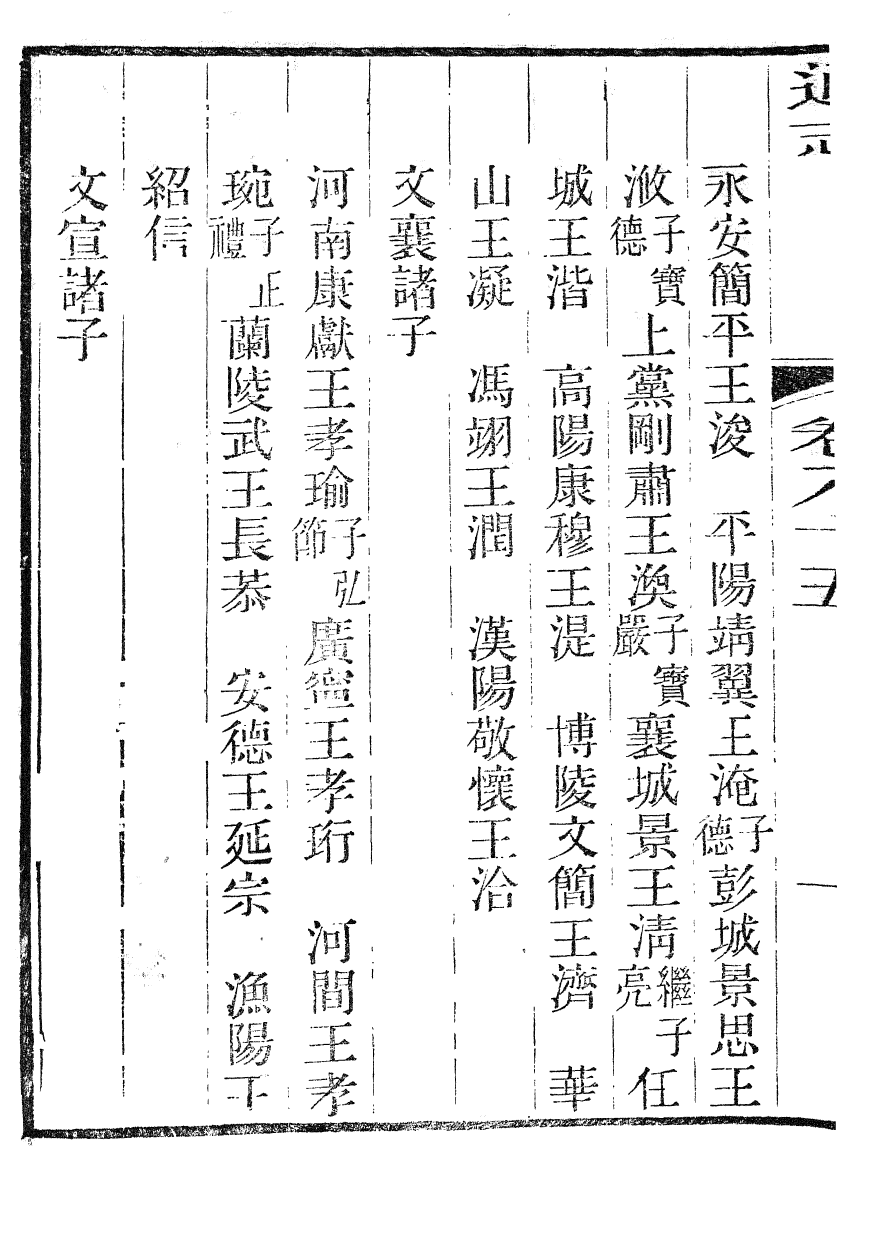 通志　卷八十五　一
永安簡平王浚　平陽靖翼王淹子德彭城景思王
浟子寶德上黨剛肅王渙子寶嚴襄城景王淸繼子亮任
城王湝　高陽康穆王湜　博陵文簡王濟　華
山王凝　馮翊王潤　漢陽敬懷王洽
文襄諸子
河南康獻王孝瑜子弘節廣寧王孝珩　河間王孝
琬子正禮蘭陵武王長恭　安德王延宗　漁陽王
紹信
文宣諸子